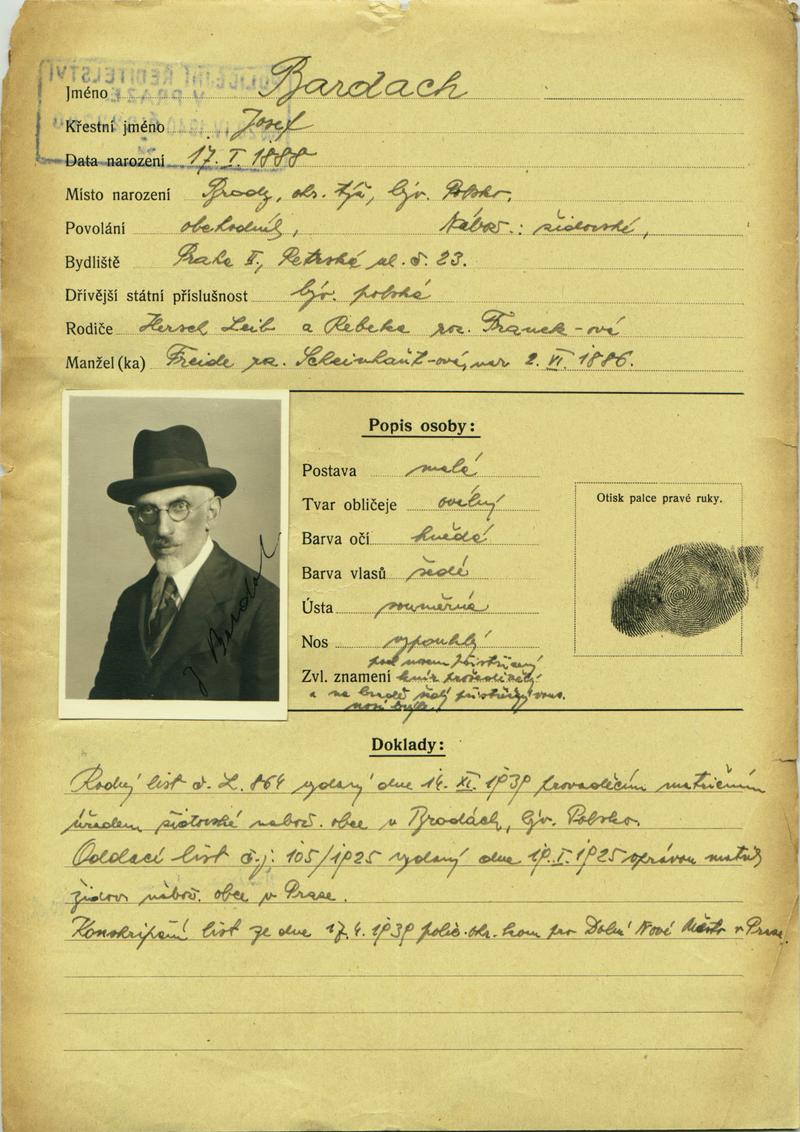 POLICEJNÍ ŘEDITELSTVÍ
V PRAZE
Jméno Bardach
Křestní jméno Josef
Data narození 17. I. 1888
Místo narození Brody, okr. týž, býv. Polsko.
Povolání obchodník, Nábož.: židovské,
Bydliště Praha II, Petrská ul. č. 23.
Dřívější státní příslušnost býv. polská
Rodiče Hersch Leib a Rebeka roz. Franck-ová
Manžel(ka) Freide roz. nar 2. VI. 1886.
Popis osoby:
Postava malá
Tvar obličeje oválný
Barva očí hnědé
Barva vlasů šedé
Ústa souměrná
Nos vypouklý
pod nosem přistřižený
Zvl. znamení knír prošedivělý
a na bradě šedý přistřižený vous.
nosí brýle.
Otisk palce pravé ruky.
J Bardach
Doklady:
Rodný list č. L. 864 vydaný dne 14. XI. 1939 prováděcím matričním
úřadem židovské nábož. obce v Brodách, býv. Polsko.
Oddací list č.j. 105/1925 vydaný dne 19. I. 1925 správou matrik
židov. nábož. obce v Praze.
Konskripční list ze dne 17. 4. 1939 polic. okr. kom pro Dolní Nové Město v Praze.